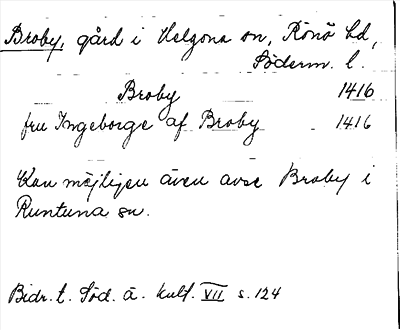 Broby, gård i Helgona sn, Rönö hd,
Söderm. l.
Broby 1416
fru Ingeborge af Broby 1416
Kan möjligen även avse Broby i
Runtuna sn.
Bidr. t. Söd. ä. kult. VII s. 124